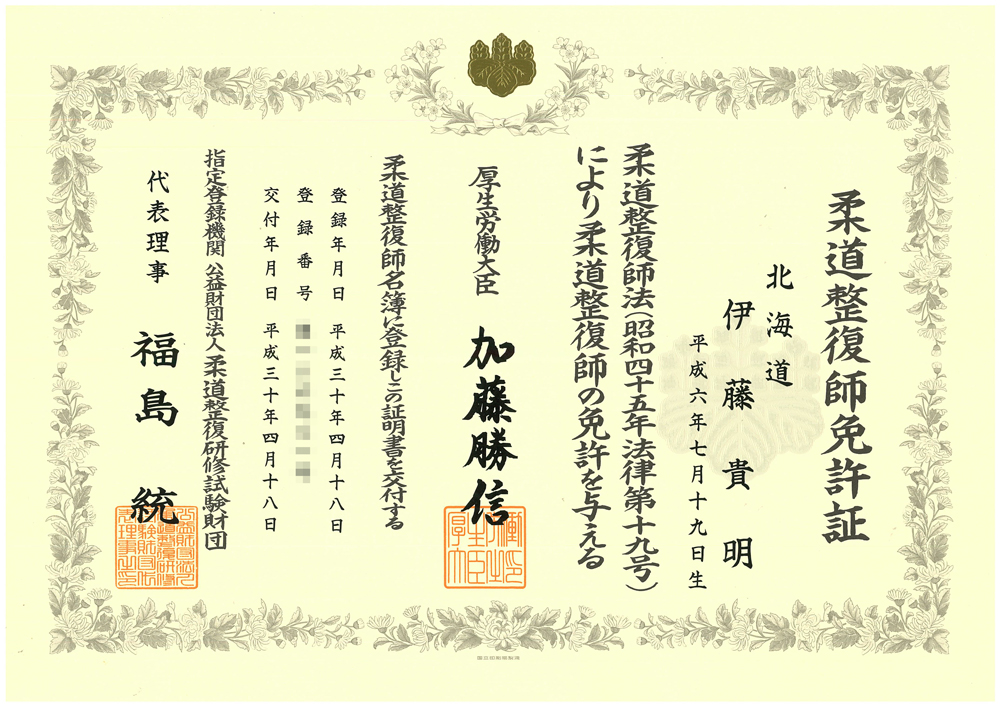 柔道整復師免許証
北海道
伊藤貴明
平成六年七月十九日生
柔道整復師法(昭和四十五年法律第十九号)
により柔道整復師の免許を与える
厚生労働大臣 加藤勝信
柔道整復師名簿に登録しこの証明書を交付する
登録年月日 平成三十年四月十八日
登録番号
交付年月日 平成三十年四月十八日
指定登録機関 公益財団法人 柔道整復研修試験財団
代表理事 福島統